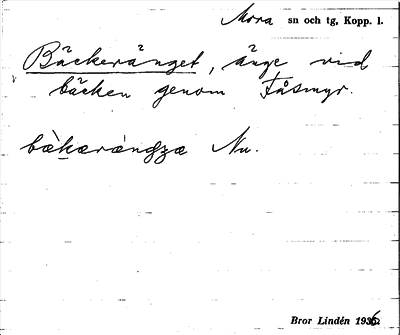 Mora sn och tg, Kopp. l.
Bäckeränget, änge vid
bäcken genom Fåsmyr.
bæ̀kæræ̀ŋgʒæ Nu.
Bror Lindén 1936